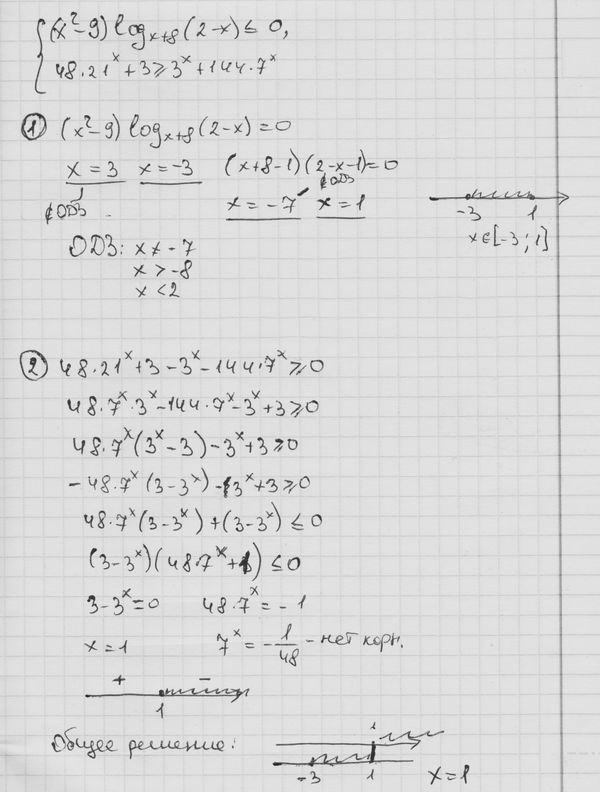 { (x²-9) log_{x+8} (2-x) ≤ 0,
48·21^x + 3 ≥ 3^x + 144·7^x
① (x²-9) log_{x+8} (2-x) = 0
x = 3 x = -3 (x+8-1)(2-x-1) = 0
∉ ОДЗ. x = -7 ∉ ОДЗ x = 1
-3 1
x∈[-3; 1]
ОДЗ: x ≠ -7
x > -8
x < 2
② 48·21^x + 3 - 3^x - 144·7^x ≥ 0
48·7^x·3^x - 144·7^x - 3^x + 3 ≥ 0
48·7^x (3^x - 3) - 3^x + 3 ≥ 0
-48·7^x (3-3^x) - 3^x + 3 ≥ 0
48·7^x (3-3^x) + (3-3^x) ≤ 0
(3-3^x)(48·7^x + 1) ≤ 0
3-3^x = 0 48·7^x = -1
x = 1 7^x = -1/48 - нет корн.
+ -
1
Общее решение: 1
-3 1 x = 1